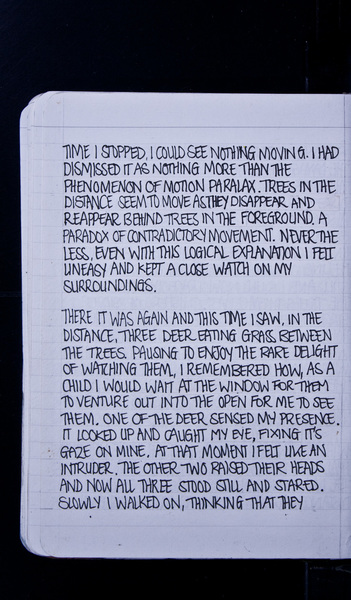 TIME I STOPPED, I COULD SEE NOTHING MOVING. I HAD
DISMISSED IT AS NOTHING MORE THAN THE
PHENOMENON OF MOTION PARALAX. TREES IN THE
DISTANCE SEEM TO MOVE AS THEY DISAPPEAR AND
REAPPEAR BEHIND TREES IN THE FOREGROUND. A
PARADOX OF CONTRADICTORY MOVEMENT. NEVER THE
LESS, EVEN WITH THIS LOGICAL EXPLANATION I FELT
UNEASY AND KEPT A CLOSE WATCH ON MY
SURROUNDINGS.
THERE IT WAS AGAIN AND THIS TIME I SAW, IN THE
DISTANCE, THREE DEER EATING GRASS BETWEEN
THE TREES. PAUSING TO ENJOY THE RARE DELIGHT
OF WATCHING THEM, I REMEMBERED HOW, AS A
CHILD I WOULD WAIT AT THE WINDOW FOR THEM
TO VENTURE OUT INTO THE OPEN FOR ME TO SEE
THEM. ONE OF THE DEER SENSED MY PRESENCE.
IT LOOKED UP AND CAUGHT MY EYE, FIXING IT'S
GAZE ON MINE. AT THAT MOMENT I FELT LIKE AN
INTRUDER. THE OTHER TWO RAISED THEIR HEADS
AND NOW ALL THREE STOOD STILL AND STARED.
SLOWLY I WALKED ON, THINKING THAT THEY